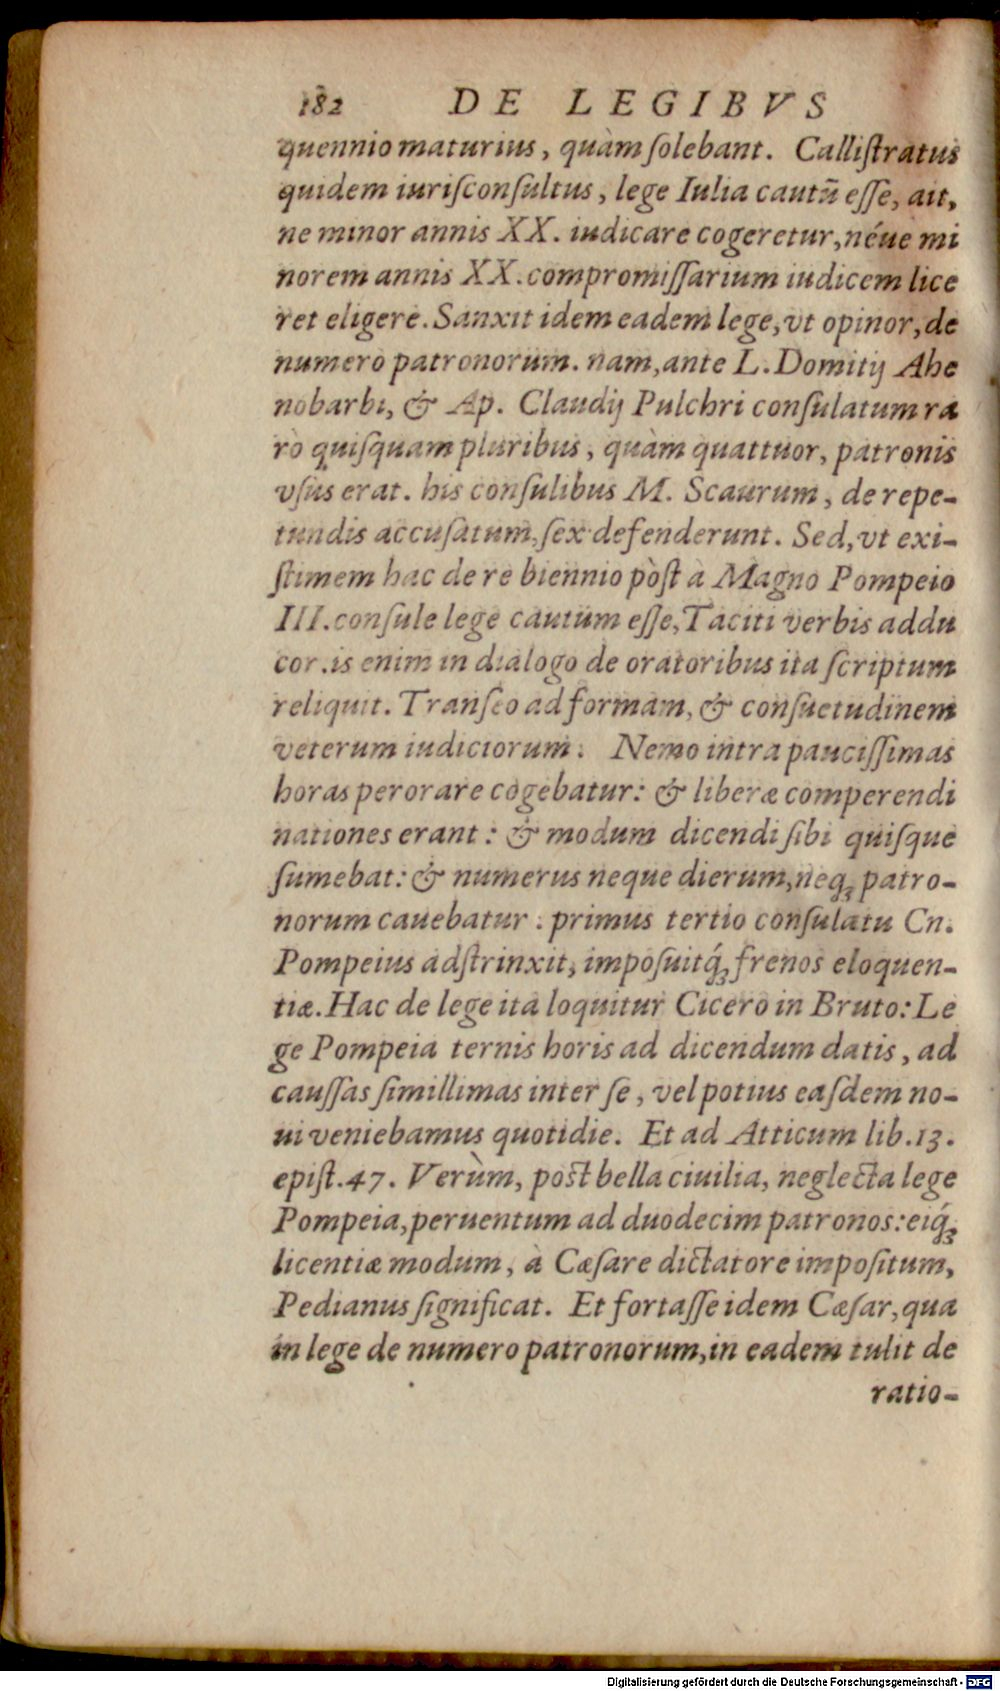 182 DE LEGIBVS
quennio maturius, quàm ſolebant. Calliſtratus
quidem iuriſconſultus, lege Iulia cautū eſſe, ait,
ne minor annis XX. iudicare cogeretur, néue mi
norem annis XX. compromiſſarium iudicem lice
ret eligere. Sanxit idem eadem lege, vt opinor, de
numero patronorum. nam, ante L. Domitij Ahe
nobarbi, & Ap. Claudij Pulchri conſulatum ra
rò quiſquam pluribus, quàm quattuor, patronis
vſus erat. his conſulibus M. Scaurum, de repe-
tundis accuſatum, ſex defenderunt. Sed, vt exi-
ſtimem hac de re biennio pòſt a Magno Pompeio
III. conſule lege cautum eſſe, Taciti verbis addu
cor. is enim in dialogo de oratoribus ita ſcriptum
reliquit. Tranſeo ad formam, & conſuetudinem
veterum iudiciorum. Nemo intra pauciſſimas
horas perorare cogebatur: & liberæ comperendi
nationes erant: & modum dicendi ſibi quiſque
ſumebat: & numerus neque dierum, neqꝫ patro-
norum cauebatur. primus tertio conſulatu Cn.
Pompeius adſtrinxit, impoſuitq́ꝫ frenos eloquen-
tiæ. Hac de lege ita loquitur Cicero in Bruto: Le
ge Pompeia ternis horis ad dicendum datis, ad
cauſſas ſimillimas inter ſe, vel potius eaſdem no-
ui veniebamus quotidie. Et ad Atticum lib. 13.
epiſt. 47. Verùm, poſt bella ciuilia, neglecta lege
Pompeia, peruentum ad duodecim patronos: eiq́ꝫ
licentiæ modum, à Cæſare dictatore impoſitum,
Pedianus ſignificat. Et fortaſſe idem Cæſar, qua
in lege de numero patronorum, in eadem tulit de
ratio-
Digitalisierung gefördert durch die Deutsche Forschungsgemeinschaft - DFG